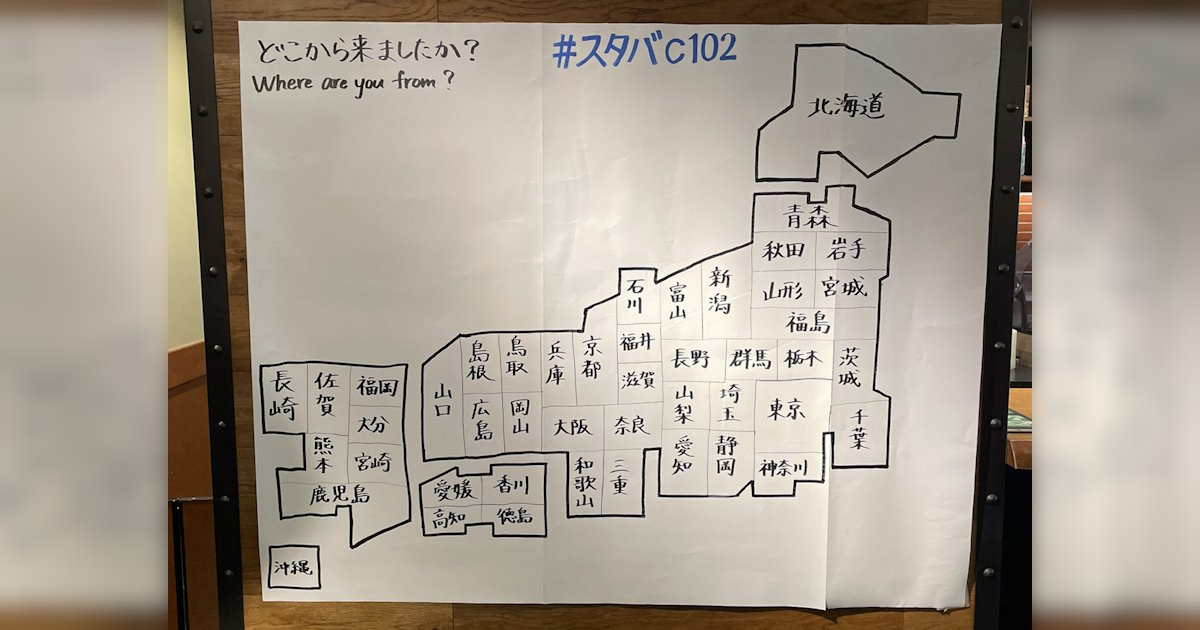 どこから来ましたか?
Where are you from?
#スタバC102
北海道
青森
秋田
岩手
山形
宮城
福島
新潟
富山
石川
福井
滋賀
長野
群馬
栃木
茨城
山梨
埼玉
東京
千葉
愛知
静岡
神奈川
京都
兵庫
鳥取
島根
山口
広島
岡山
大阪
奈良
和歌山
三重
愛媛
香川
高知
徳島
長崎
佐賀
福岡
大分
熊本
宮崎
鹿児島
沖縄